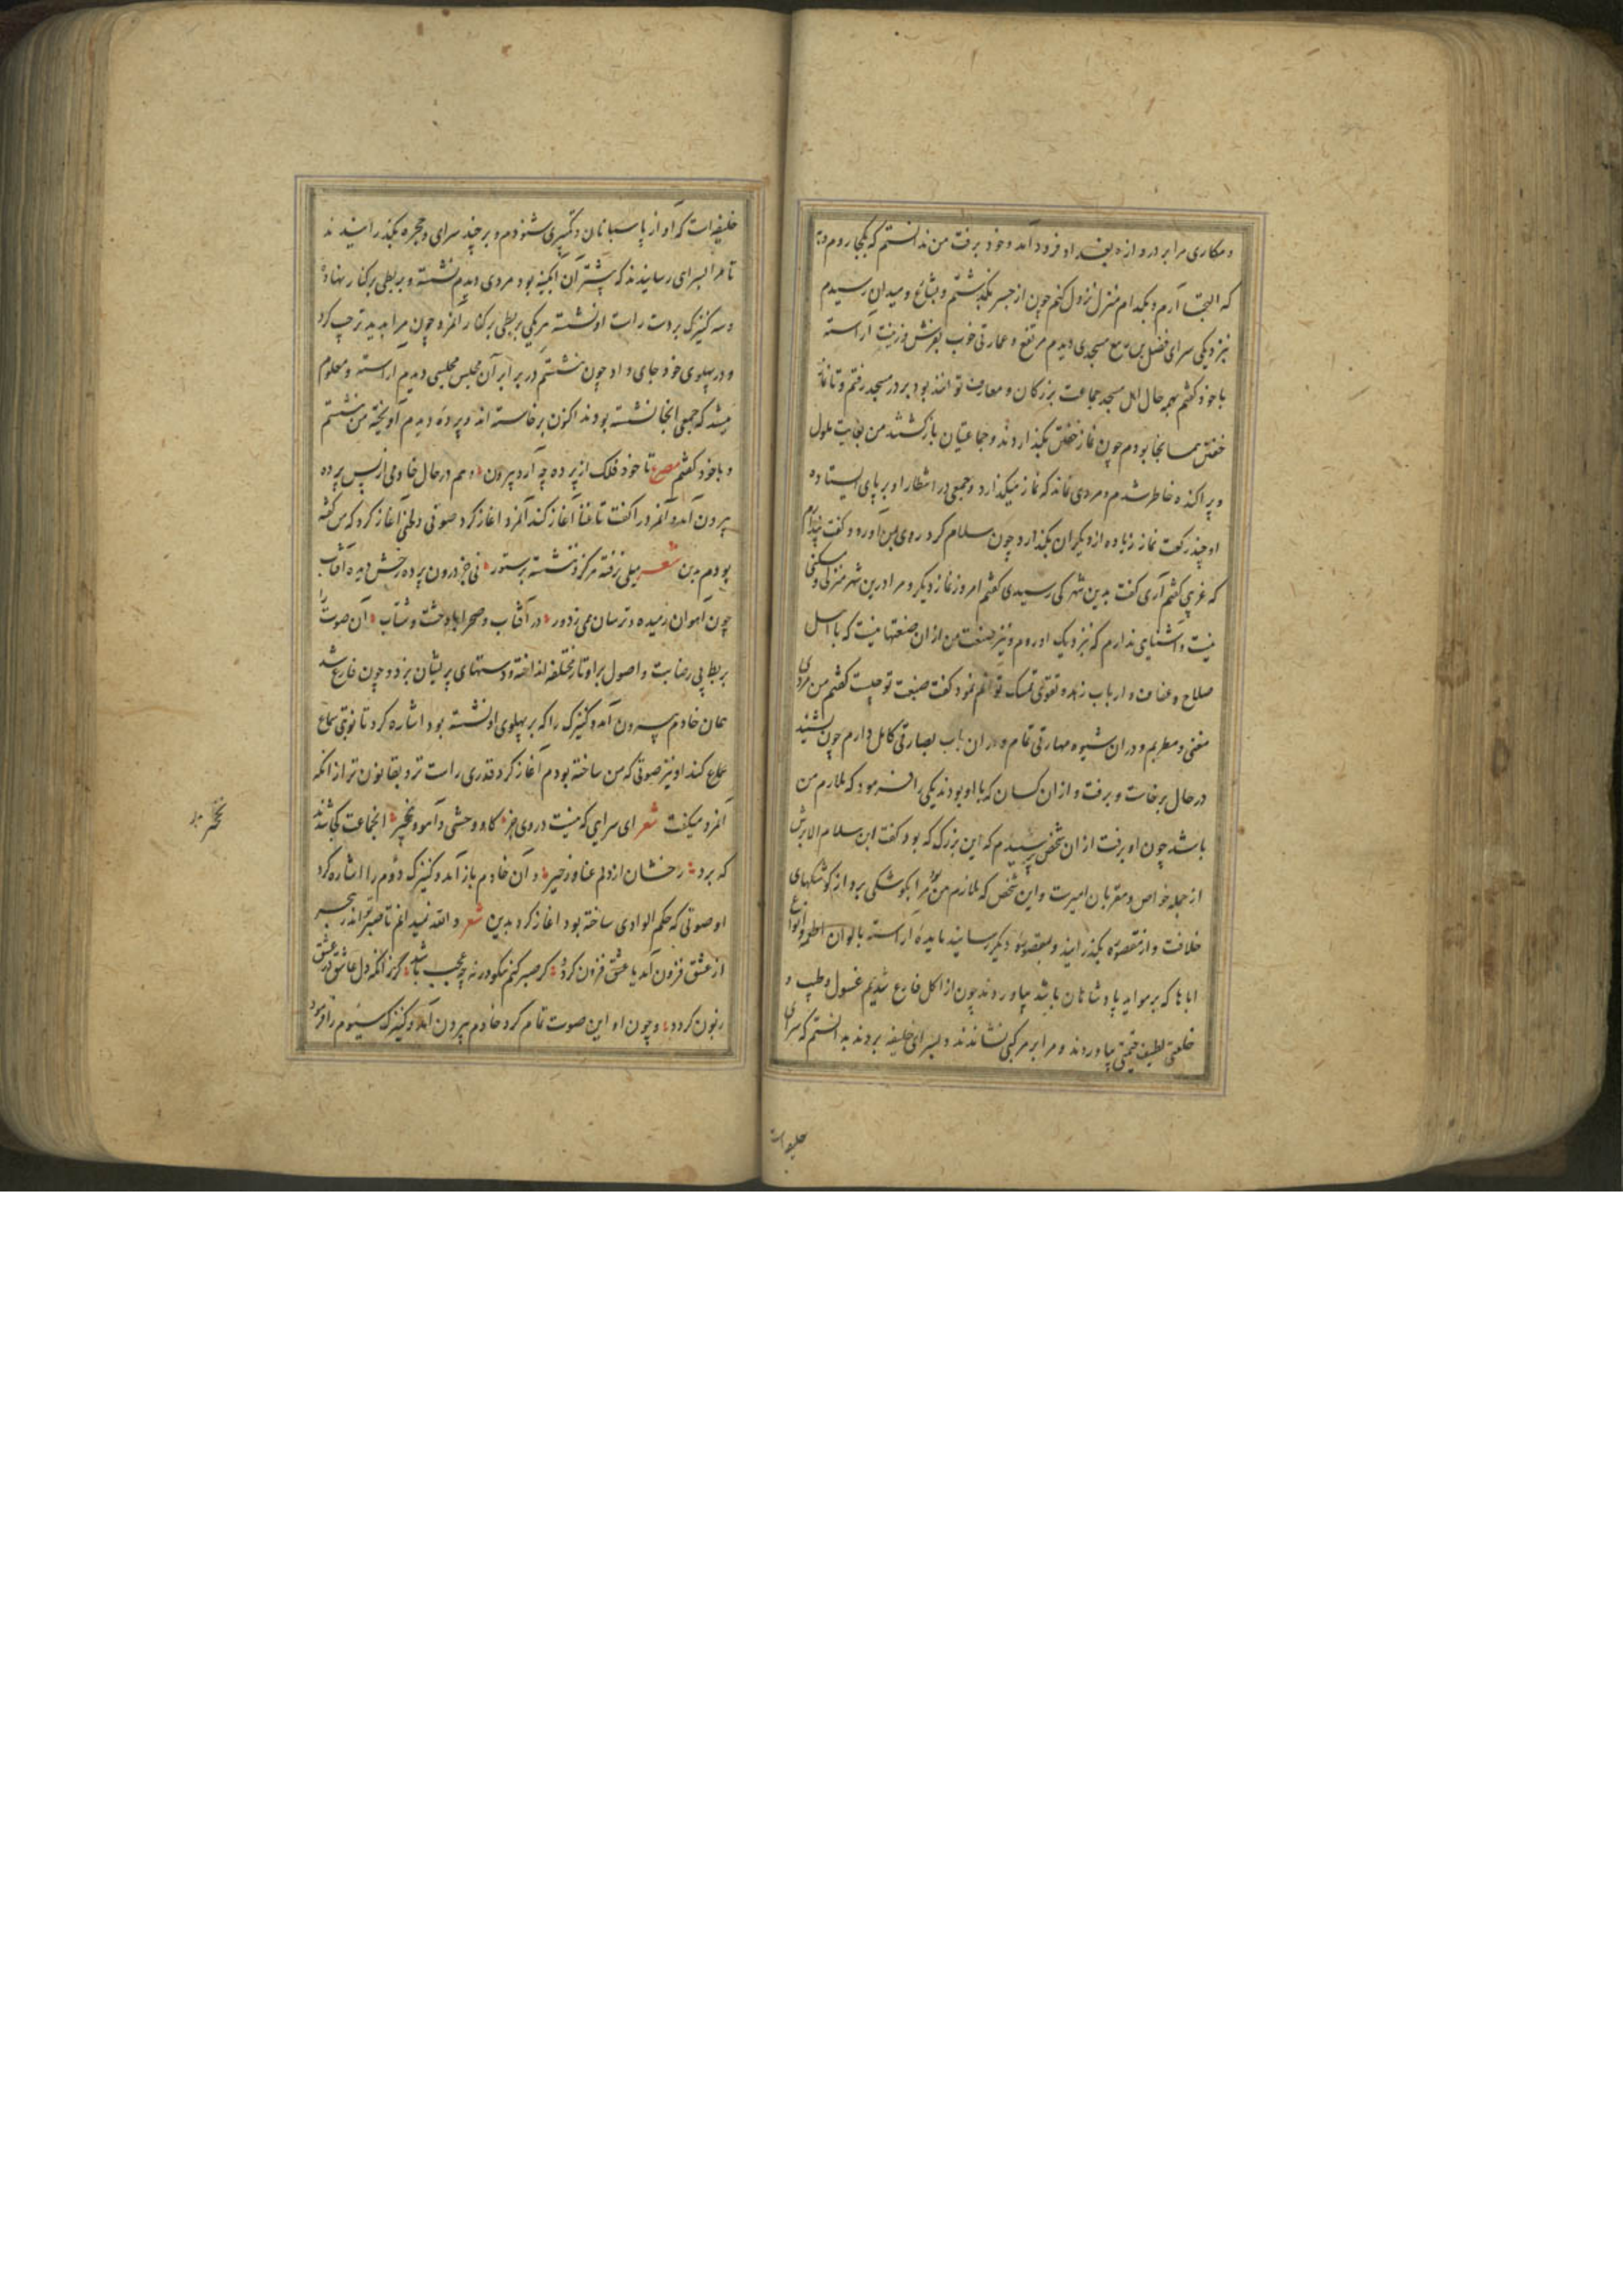 و مکاری مرا بر دروازه بغداد فرود آمد و خود برفت من ندانستم که بکجا روم و به
که التجا آرم و بکدام منزل نزول کنم چون از جسر بگذشتم و بشارع و میدان رسیدم
بنزدیکی سرای فضل بن ربیع مسجدی دیدم مرتفع و عمارتی خوب بفرش و زینت آراسته
با خود گفتم بهمه حال اهل مسجد جماعت بزرگان و معارف توانند بود در مسجد رفتم و تا نماز
خفتن همانجا بودم چون نماز خفتن بگذاردند و جماعتیان بازگشتند من بغایت ملول
و پراکنده خاطر شدم و مردی بماند که نماز میگذارد و جمعی در انتظار او بر پای ایستاده
او چند رکعت نماز زیاده از دیگران بگذارد چون سلام کرد روی بمن آورد و گفت پندارم
که غریبی گفتم آری گفت بدین شهر کی رسیدی گفتم امروز نماز دیگر و مرا درین شهر منزلی و مسکنی
نیست و آشنایی ندارم که نزدیک او روم و نیز صنعت من از ان صنعتها نیست که با اهل
صلاح و عفاف و ارباب زهد و تقوی تمسک توانم نمود گفت صنعت تو چیست گفتم من مردی
مغنی و مطربم و در ان شیوه مهارتی تمام و در ان باب بصارتی کامل دارم چون بشنید
در حال برخاست و برفت و از ان کسان که با او بودند یکی را فرمود که ملازم من
باشد چون او برفت از ان شخص پرسیدم که این بزرگ که بود گفت ابن سلام الابرش
از جمله خواص و مقربان امیرست و این شخص که ملازم من بود مرا بکوشکی برد از کوشکهای
خلافت و از مقصوره بگذرانید و بمقصوره دیگر رسانید مایده آراسته بالوان اطعمه و انواع
اباها که بر مواید پادشاهان باشد بیاوردند چون از اکل فارغ شدیم غسول و طیب و
خلعتی لطیف قیمتی بیاوردند و مرا بر مرکبی نشاندند و بسرای خلیفه بردند بدانستم که سرای
خلیفه است
خلیفه است که آواز پاسبانان و تکبیر می شنودم و بر چند سرای و حجره بگذرانیدند
تا مرا بسرای رسانیدند که بیشتر آن آبگینه بود مردی دیدم نشسته و بربطی بر کنار نهاده
و سه کنیزک بر دست راست او نشسته هر یکی بربطی بر کنار آنمرد چون مرا بدید ترحیب کرد
و در پهلوی خود جای داد چون بنشستم در برابر آن مجلس مجلسی دیدم آراسته و معلوم
میشد که جمعی آنجا نشسته بودند اکنون برخاسته اند و پرده دیدم آویخته من بنشستم
و با خود گفتم مصرع تا خود فلک از پرده چه آرد بیرون و هم در حال خادمی از پس پرده
بیرون آمد و آنمرد را گفت تا غنا آغاز کند آنمرد آغاز کرد صوتی و لحنی آغاز کرد که من گفته
بودم بدین شعر میلی نرفته هرگز و ننشسته بر ستور نی جز درون پرده رخش دیده آفتاب
چون آهوان رمیده و ترسان می زدور در آفتاب و صحرا با وحشت و شتاب آن صوت را
بربط بی رضابت و اصول بر اوتار مختلفه انداخته و دستهای پریشان بزد و چون فارغ شد
همان خادم بیرون آمد و کنیزک را که بر پهلوی او نشسته بود اشاره کرد تا نوبتی سماع
سماع کند او نیز صوتی که من ساخته بودم آغاز کرد قدری راست تر و بقانون تر از آنکه
آنمرد میگفت شعر ای سرایی که نیست در وی جز گاو وحشی و آهو و نخجیر آنجماعت کجا شدند
که برد رخشان از دلم عنا و زحیر و آن خادم باز آمد و کنیزک دوم را اشاره کرد
او صوتی که حکم الوادی ساخته بود آغاز کرد بدین شعر والله نمیدانم تا صبر اندر هجر
از عشق فزون آمد یا عشق فزون گردد گر صبر کنم نکو ورنه چه عجب باشد گر زانکه دل عاشق در عشق
زبون گردد و چون او این صوت تمام کرد خادم بیرون آمد و کنیزک سیوم را فرمود